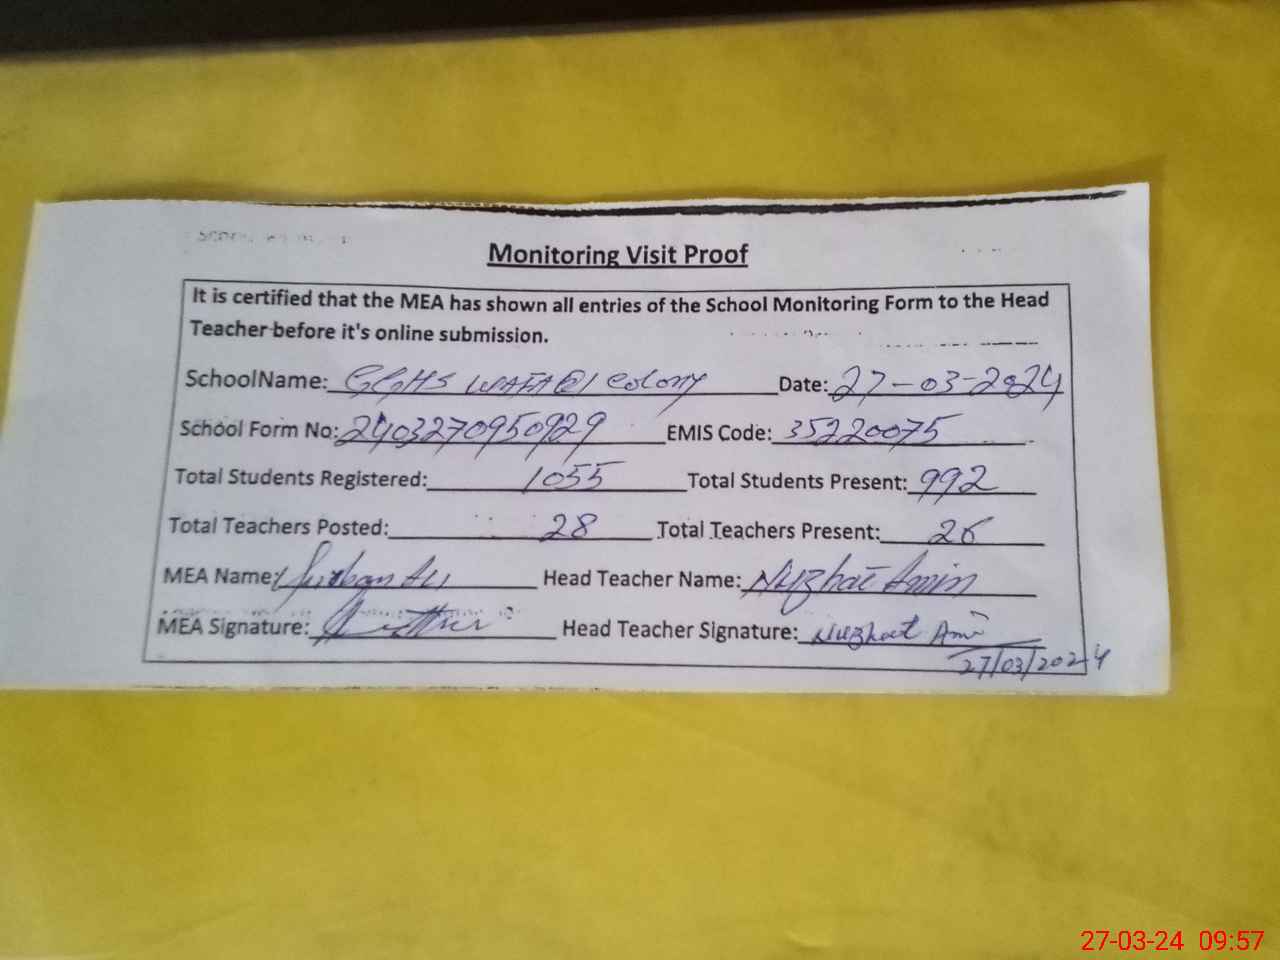 Monitoring Visit Proof
It is certified that the MEA has shown all entries of the School Monitoring Form to the Head
Teacher before it's online submission.
SchoolName: GGHS WAFAQI Colony Date: 27-03-2024
School Form No: 2403270950929 EMIS Code: 35220075
Total Students Registered: 1055 Total Students Present: 992
Total Teachers Posted: 28 Total Teachers Present: 26
MEA Name: Ali Head Teacher Name: Nuzhat Amin
MEA Signature: Head Teacher Signature: Nuzhat Ami
27/03/2024
27-03-24 09:57